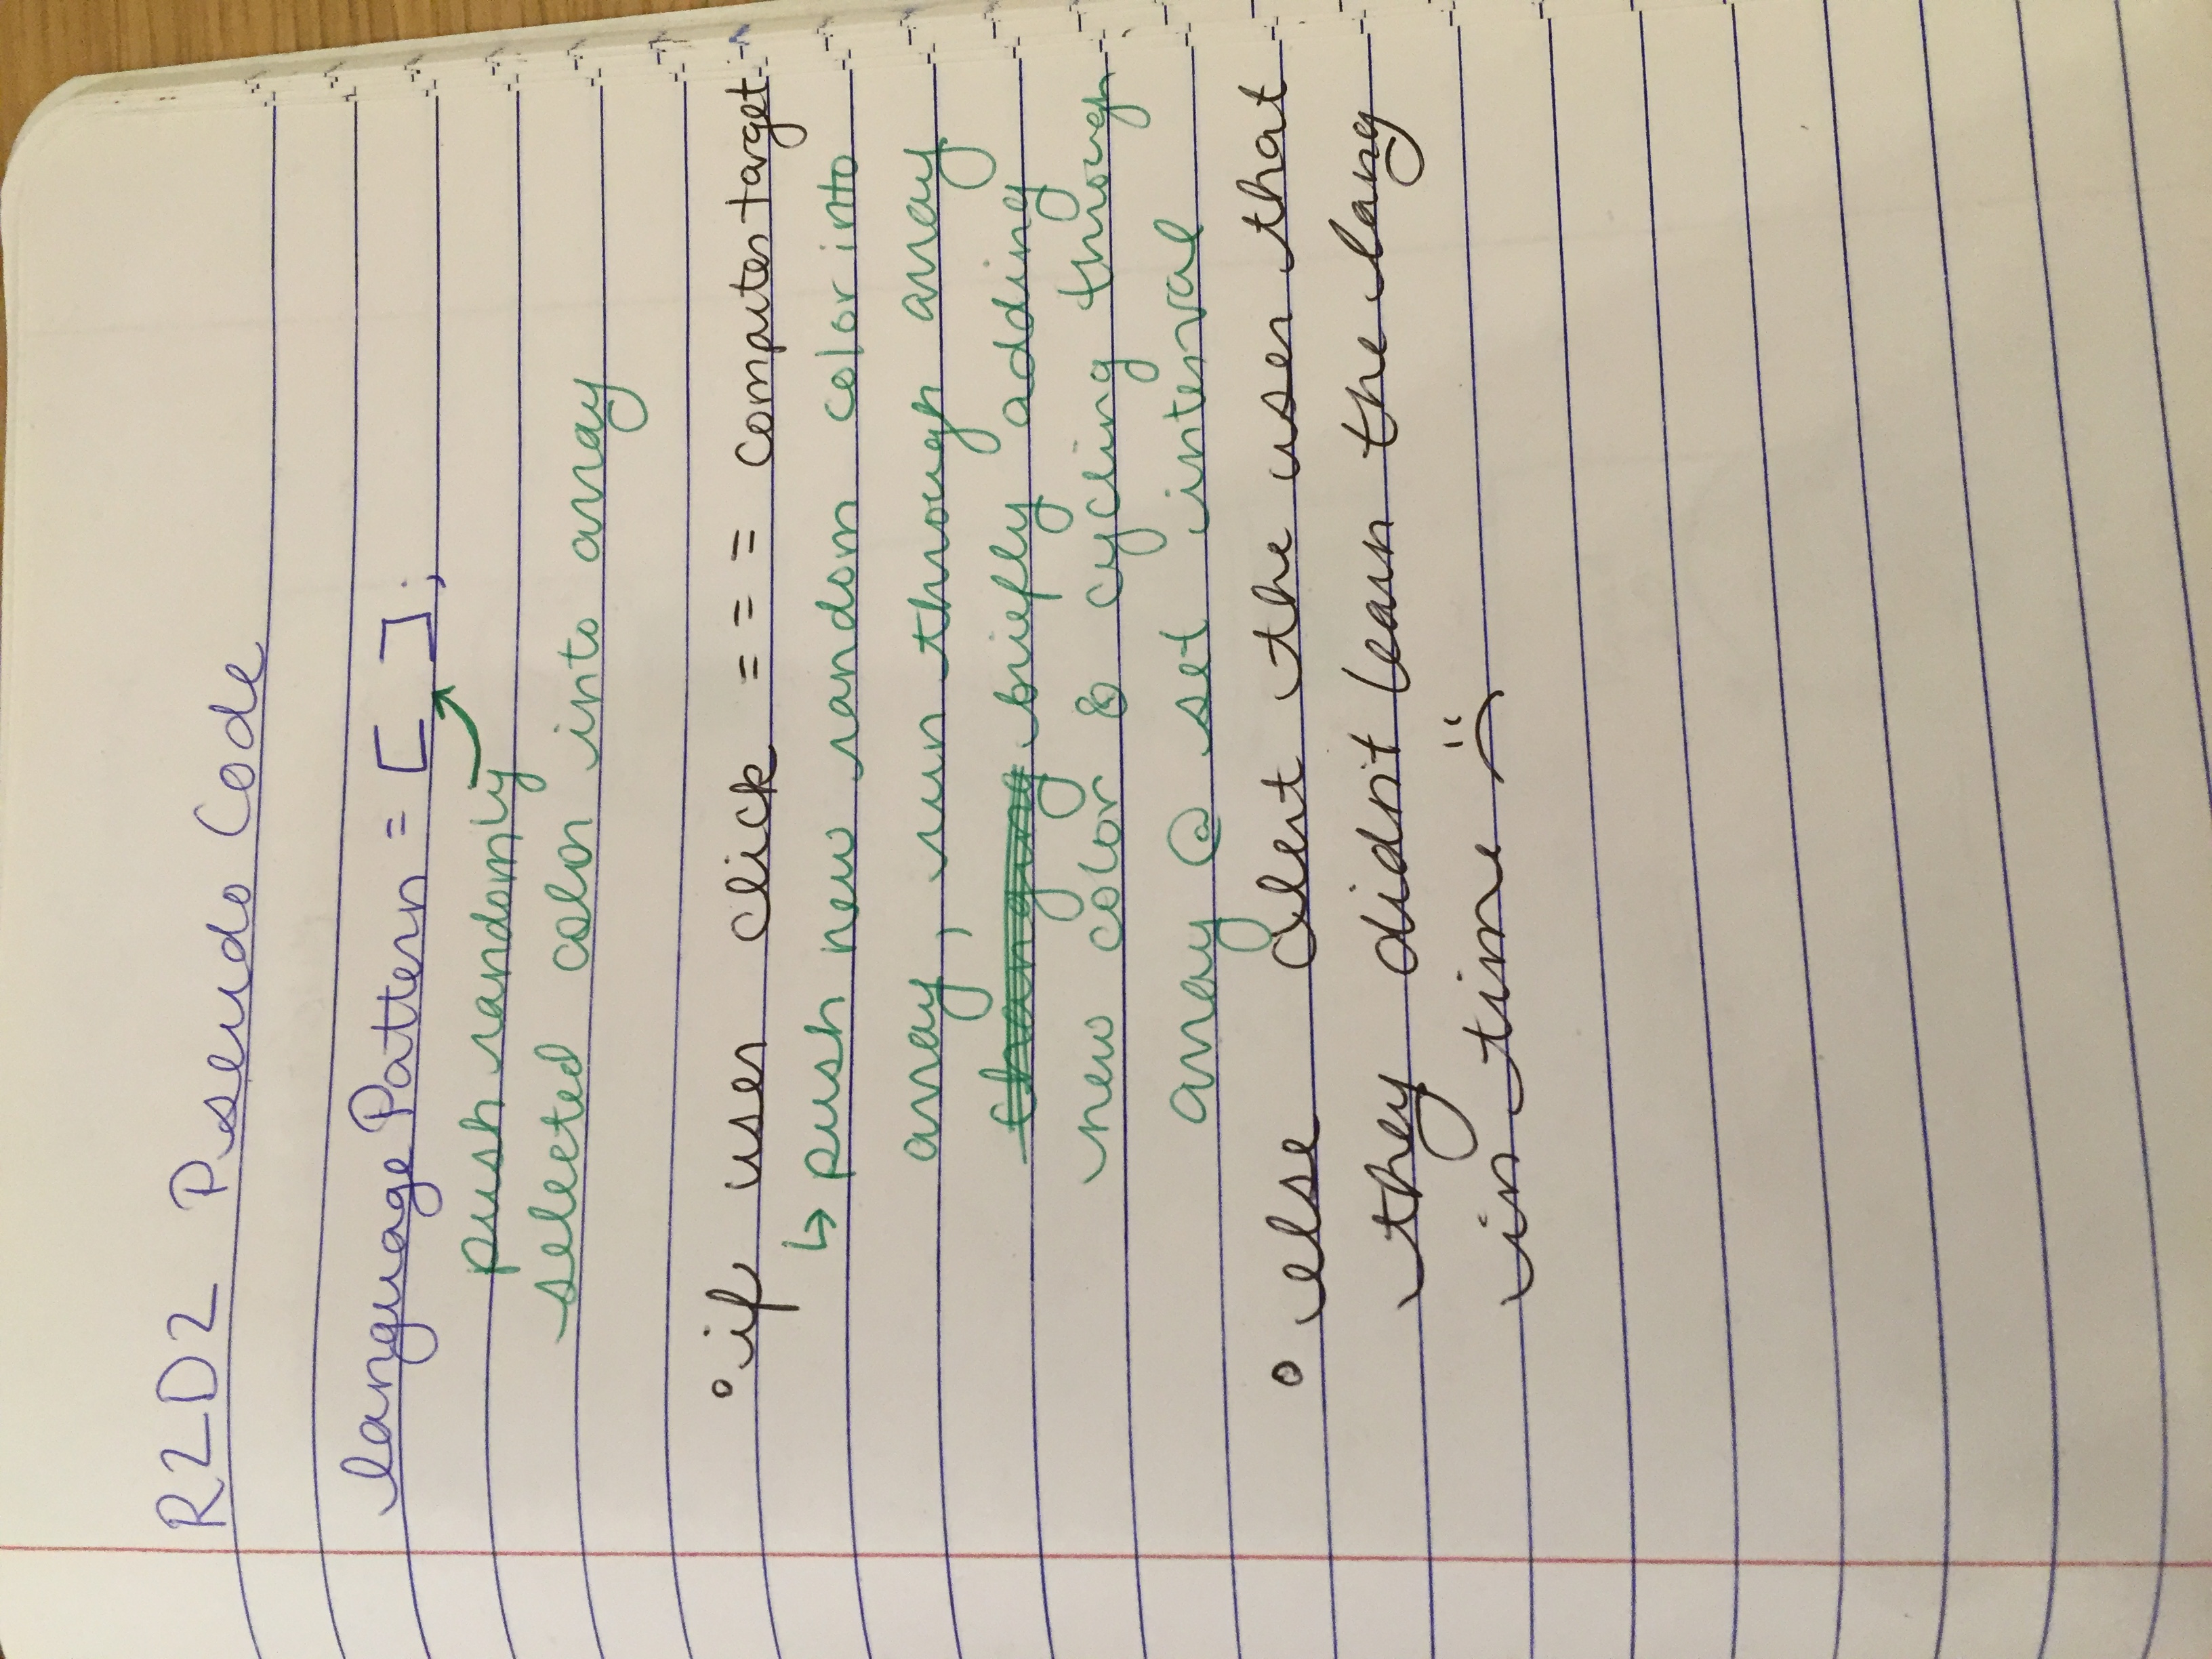 R2D2 Pseudo Code
languagePattern = [ ];
push randomly
selected color into array
• if user click === computer target
↳ push new random color into
array, run through array
changing briefly adding
new color & cycling through
array @ set interval
• else alert the user that
they didn't learn the lang
in time :(